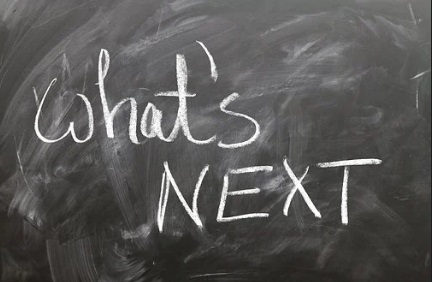 what's
NEXT